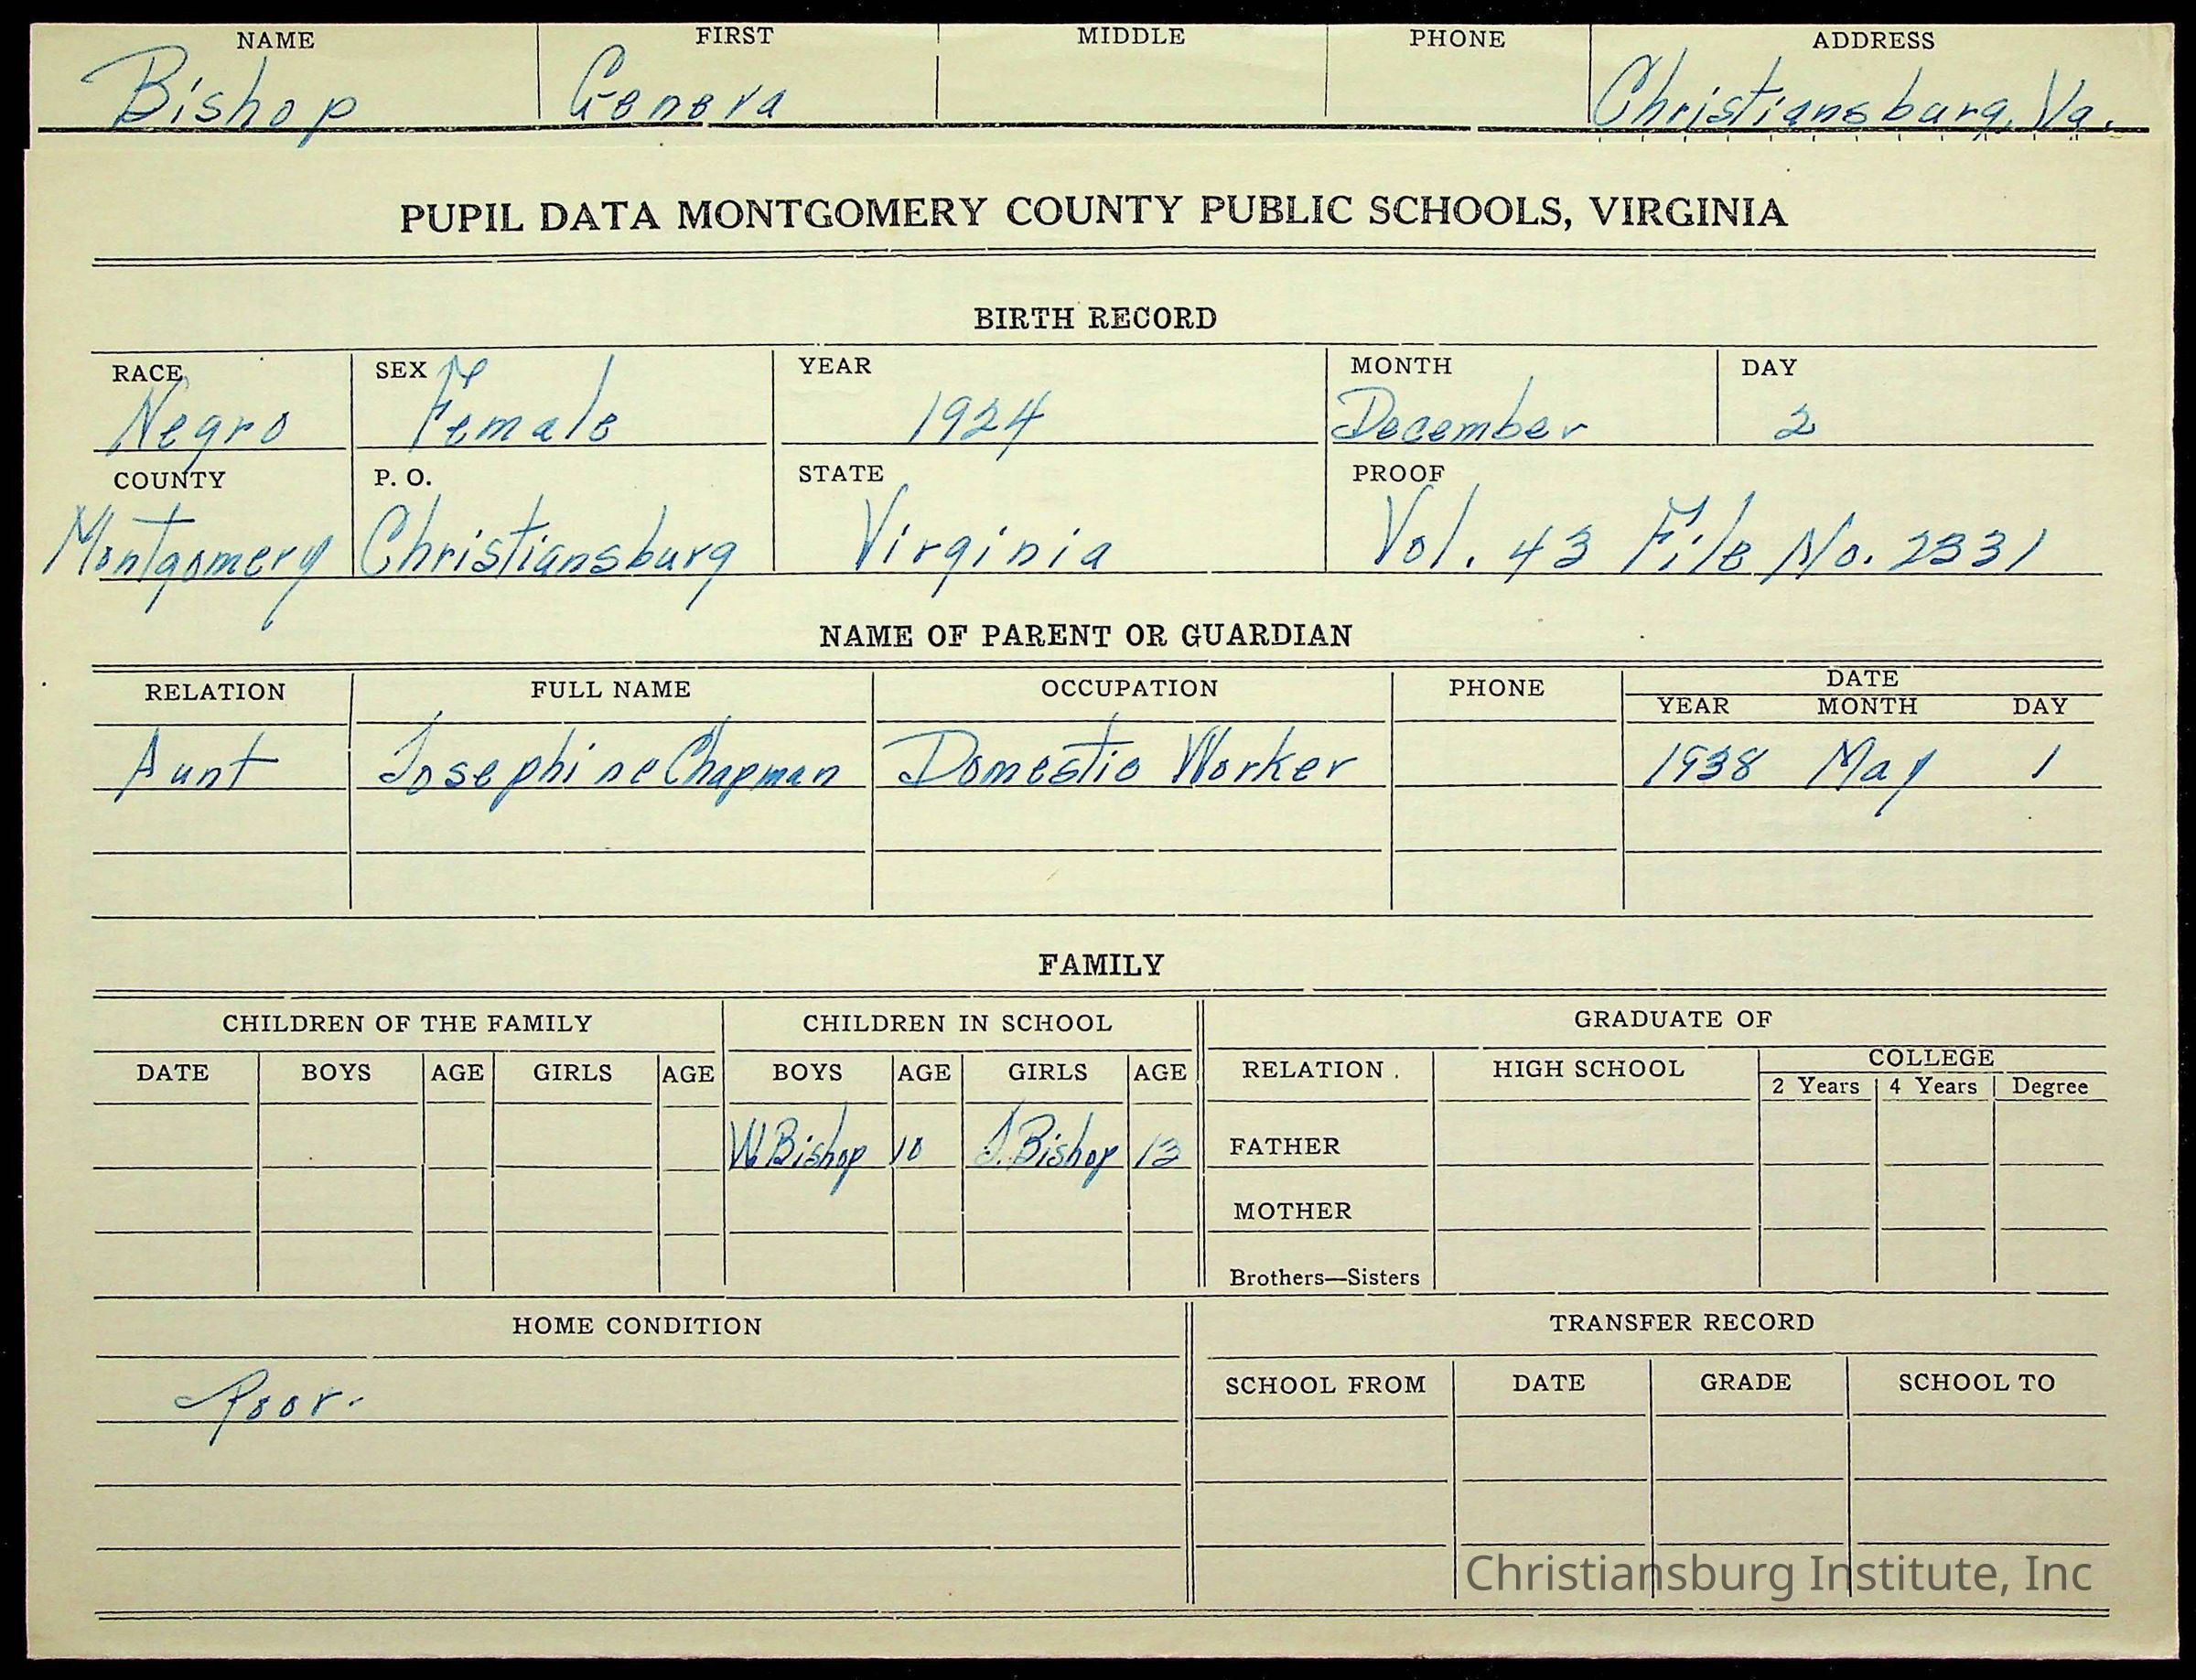 NAME FIRST MIDDLE PHONE ADDRESS
Bishop Geneva Christiansburg, Va.
PUPIL DATA MONTGOMERY COUNTY PUBLIC SCHOOLS, VIRGINIA
BIRTH RECORD
RACE SEX YEAR MONTH DAY
Negro Female 1924 December 2
COUNTY P. O. STATE PROOF
Montgomery Christiansburg Virginia Vol. 43 File No. 2331
NAME OF PARENT OR GUARDIAN
RELATION FULL NAME OCCUPATION PHONE DATE
YEAR MONTH DAY
Aunt Josephine Chapman Domestic Worker 1938 May 1
FAMILY
CHILDREN OF THE FAMILY CHILDREN IN SCHOOL GRADUATE OF
DATE BOYS AGE GIRLS AGE BOYS AGE GIRLS AGE RELATION . HIGH SCHOOL COLLEGE
2 Years 4 Years Degree
W. Bishop 10 J. Bishop 13 FATHER
MOTHER
Brothers—Sisters
HOME CONDITION TRANSFER RECORD
SCHOOL FROM DATE GRADE SCHOOL TO
Poor.
Christiansburg Institute, Inc